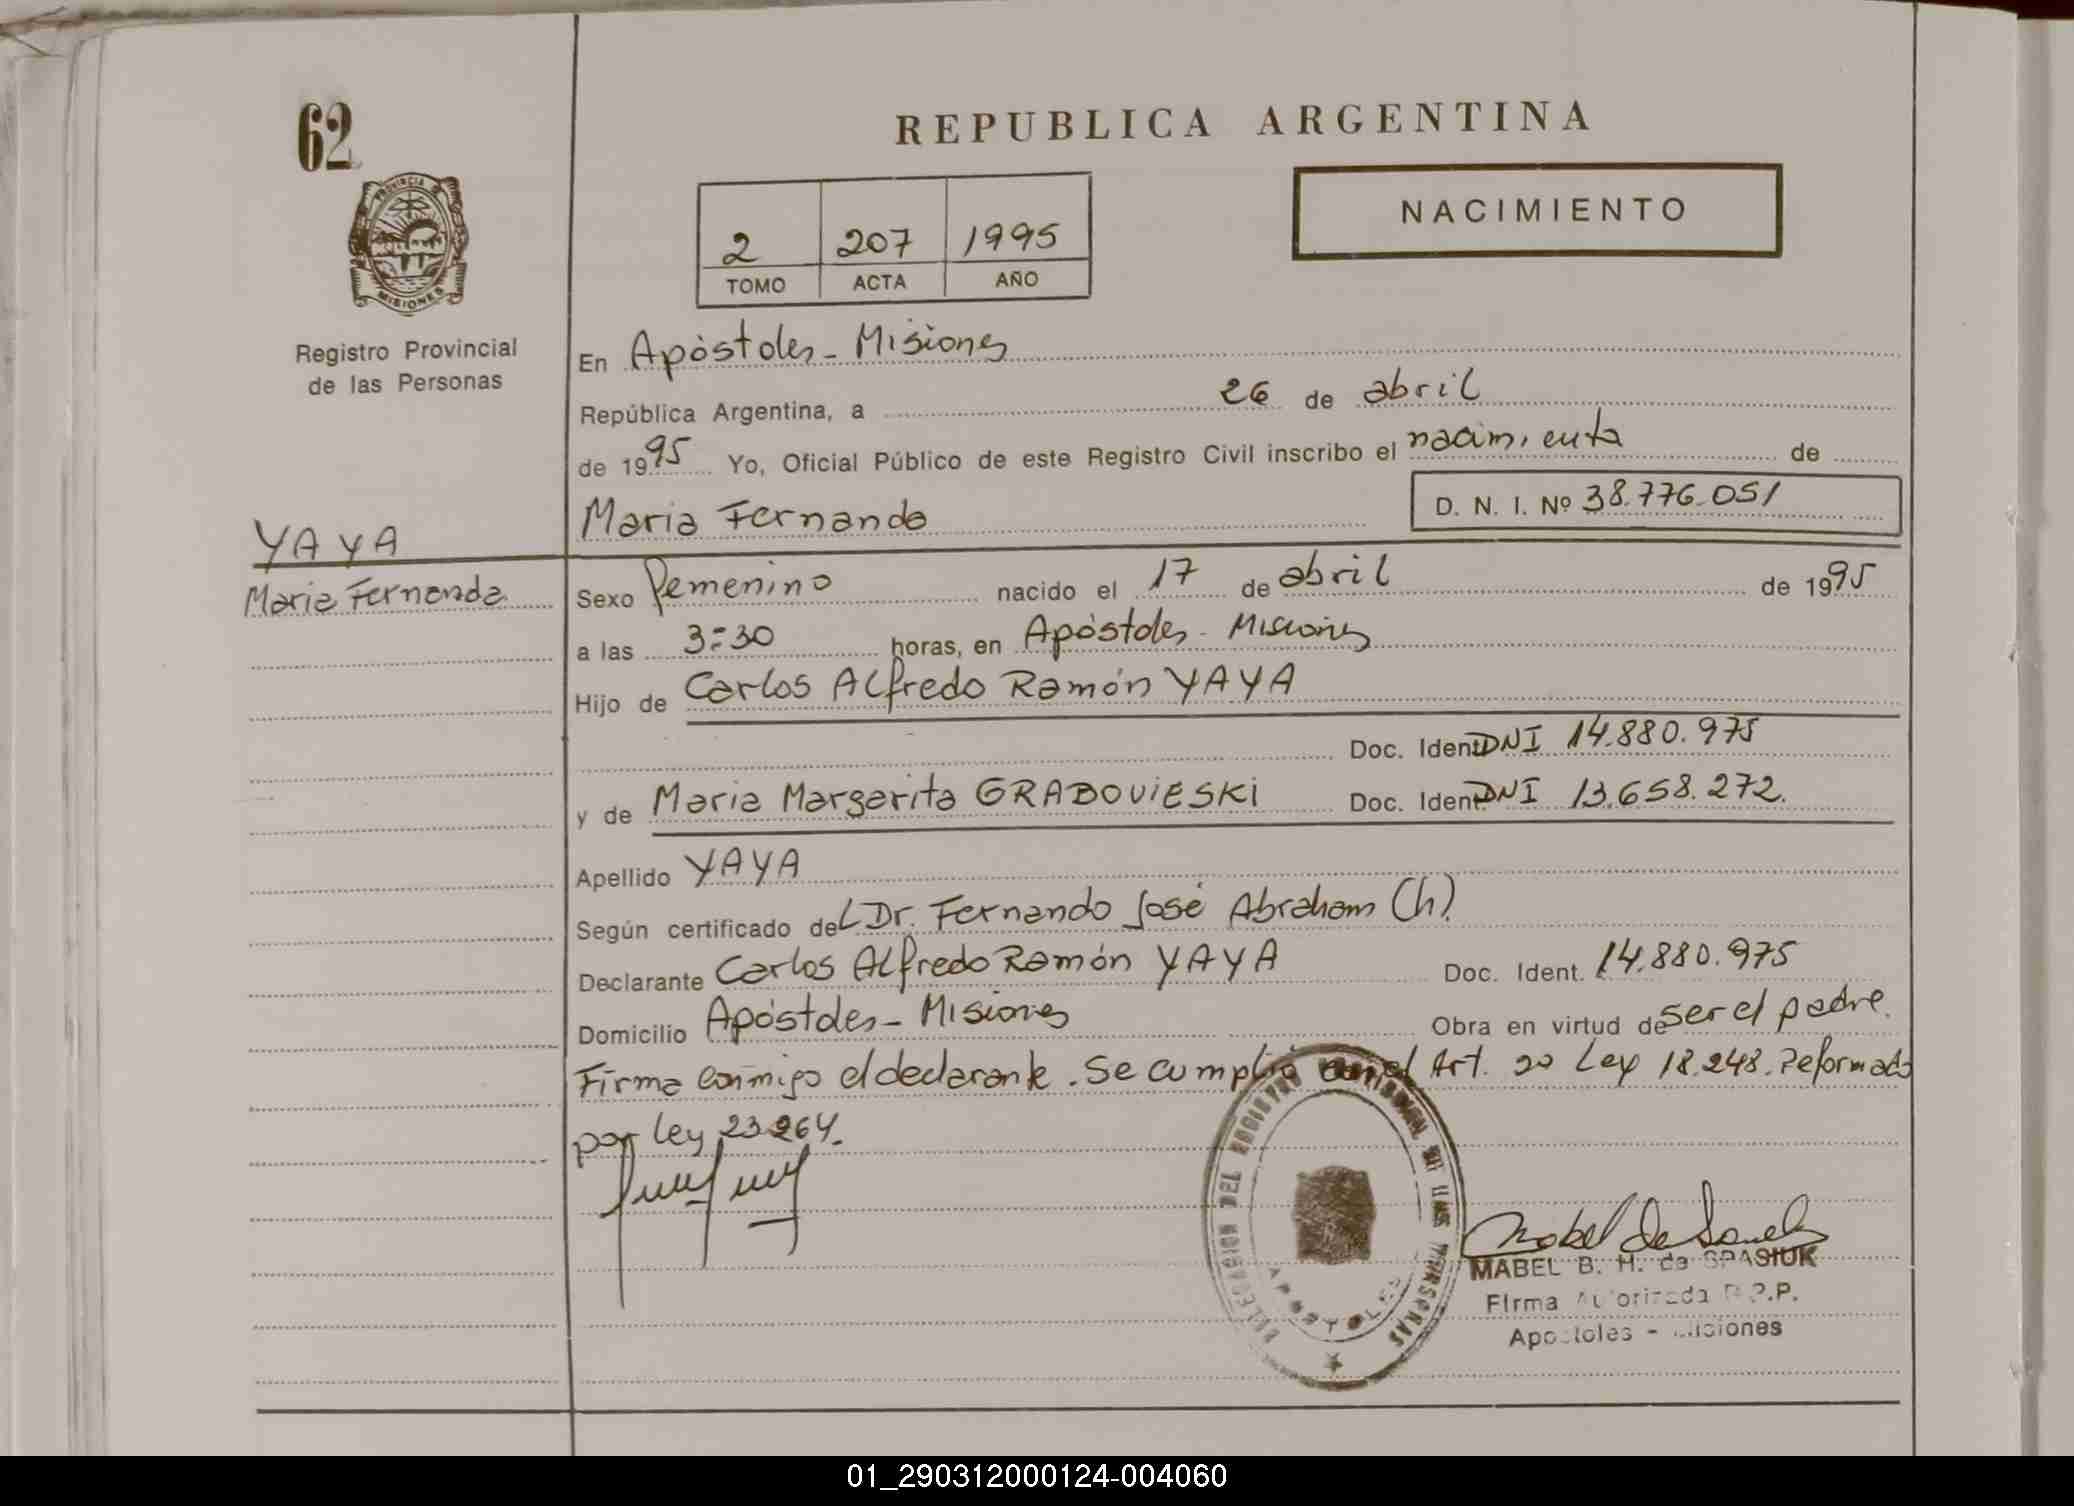 62
REPUBLICA ARGENTINA
NACIMIENTO
2 207 1995
TOMO ACTA AÑO
PROVINCIA DE
MISIONES
Registro Provincial
de las Personas
En Apóstoles - Misiones
República Argentina, a 26 de abril
de 1995 Yo, Oficial Público de este Registro Civil inscribo el nacimiento de
Maria Fernanda D. N. I. Nº 38.776.051
YAYA
Maria Fernanda
Sexo femenino nacido el 17 de abril de 1995
a las 3:30 horas, en Apóstoles - Misiones
Hijo de Carlos Alfredo Ramón YAYA
Doc. Ident. DNI 14.880.975
y de Maria Margarita GRABOVIESKI Doc. Ident. DNI 13.658.272.
Apellido YAYA
Según certificado del Dr. Fernando José Abraham (h).
Declarante Carlos Alfredo Ramón YAYA Doc. Ident. 14.880.975
Domicilio Apóstoles - Misiones Obra en virtud de ser el padre.
Firma conmigo el declarante. Se cumplió con el Art. 20 Ley 18.248. Reformado
por ley 23.264.
DELEGACION DEL REGISTRO PROVINCIAL DE LAS PERSONAS
APOSTOLES
MABEL B. H. de SPASIUK
Firma Autorizada R.P.P.
Apostoles - Misiones
01_290312000124-004060